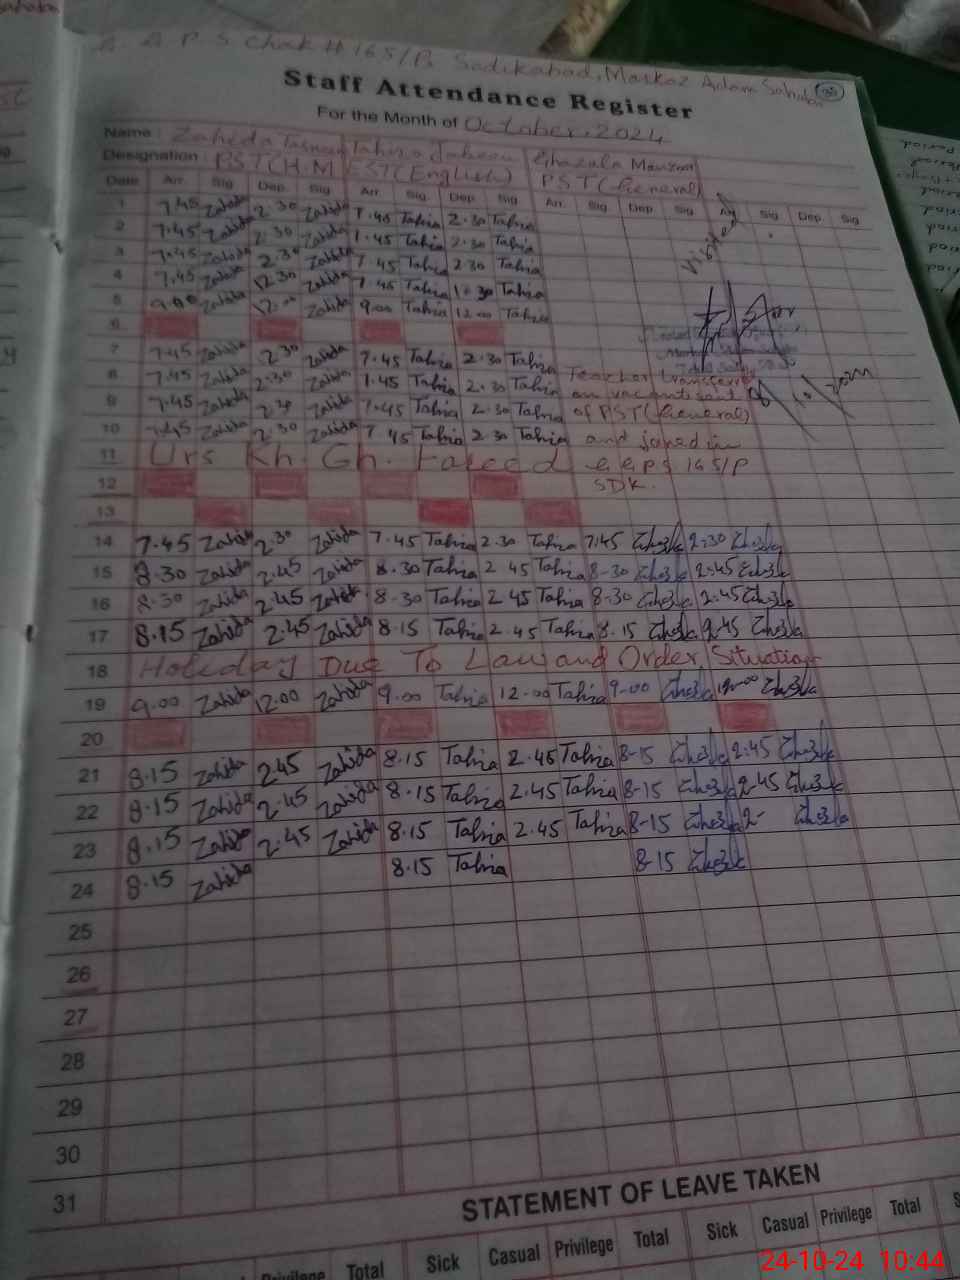 P.S Chak # 165/P. Sadikabad, Markaz Adam Sahaba
Staff Attendance Register
For the Month of October, 2024
Name : Zahida Tasneem Tahira Jabeen Ghazala Manzoor
Designation : PST(H.M EST(English) PST(General)
Date Arr. Sig Dep. Sig Arr. Sig Dep. Sig Arr. Sig Dep. Sig Arr. Sig Dep. Sig
1 7.45 Zahida 2.30 Zahida 7.45 Tahira 2.30 Tahira
2 7.45 Zahida 2.30 Zahida 7.45 Tahira 2.30 Tahira
3 7.45 Zahida 2.30 Zahida 7.45 Tahira 2.30 Tahira
4 7.45 Zahida 12.30 Zahida 7.45 Tahira 1.30 Tahira
5 9.00 Zahida 12.00 Zahida 9.00 Tahira 12.00 Tahira
Visited
6
7 7.45 Zahida 2.30 Zahida 7.45 Tahira 2.30 Tahira
8 7.45 Zahida 2.30 Zahida 7.45 Tahira 2.30 Tahira
9 7.45 Zahida 2.30 Zahida 7.45 Tahira 2.30 Tahira
10 7.45 Zahida 2.30 Zahida 7.45 Tahira 2.30 Tahira
Teacher transferred
on vacant seat
of PST(General)
and joined in
G.G.P.S 165/P
SDK.
11 Urs Kh. Gh. Fareed
12
13
14 7.45 Zahida 2.30 Zahida 7.45 Tahira 2.30 Tahira 7:45 Ghazala 2:30 Ghazala
15 8.30 Zahida 2.45 Zahida 8.30 Tahira 2 45 Tahira 8-30 Ghazala 2:45 Ghazala
16 8.30 Zahida 2.45 Zahida 8.30 Tahira 2 45 Tahira 8-30 Ghazala 2:45 Ghazala
17 8.15 Zahida 2.45 Zahida 8.15 Tahira 2.45 Tahira 8.15 Ghazala 2-45 Ghazala
18 Holiday Due To Law and Order Situation
19 9.00 Zahida 12.00 Zahida 9.00 Tahira 12-00 Tahira 9-00 Ghazala 12-00 Ghazala
20
21 8.15 Zahida 2.45 Zahida 8.15 Tahira 2.45 Tahira 8-15 Ghazala 2:45 Ghazala
22 8.15 Zahida 2.45 Zahida 8.15 Tahira 2.45 Tahira 8-15 Ghazala 2-45 Ghazala
23 8.15 Zahida 2.45 Zahida 8.15 Tahira 2.45 Tahira 8-15 Ghazala 2- Ghazala
24 8.15 Zahida 8.15 Tahira 8-15 Ghazala
25
26
27
28
29
30
31
STATEMENT OF LEAVE TAKEN
Privilege Total Sick Casual Privilege Total Sick Casual Privilege Total
24-10-24 10:44